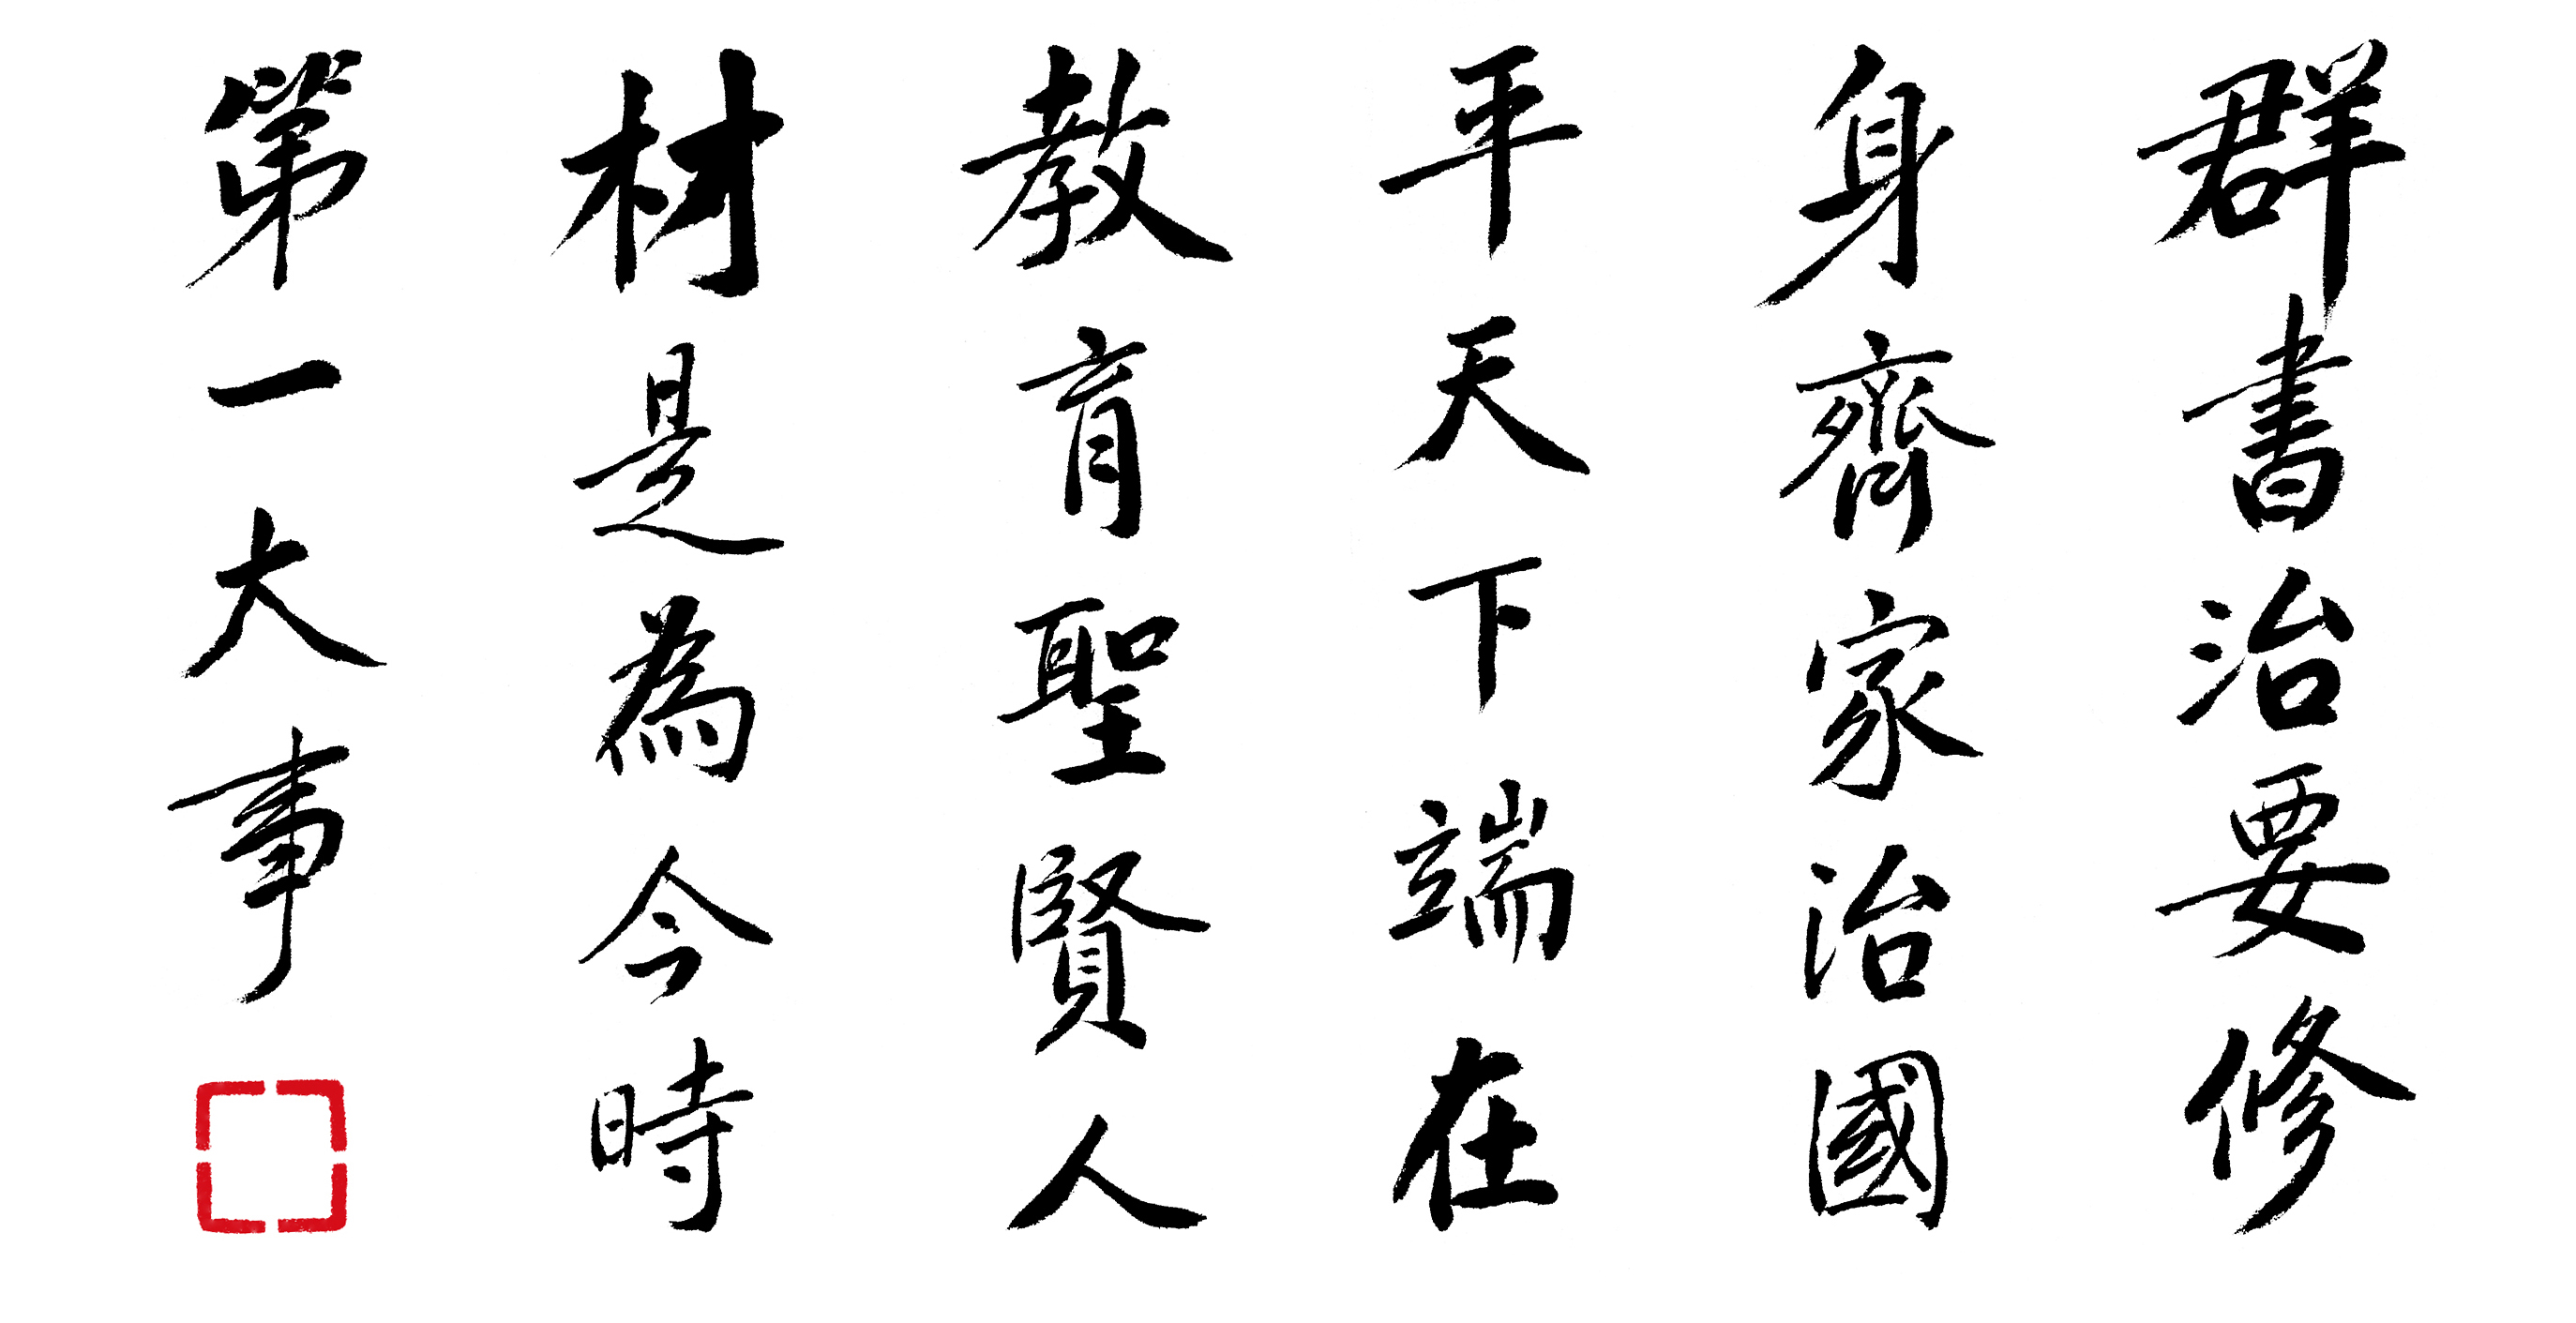 群書治要修
身齊家治國
平天下端在
教育聖賢人
材是為今時
第一大事